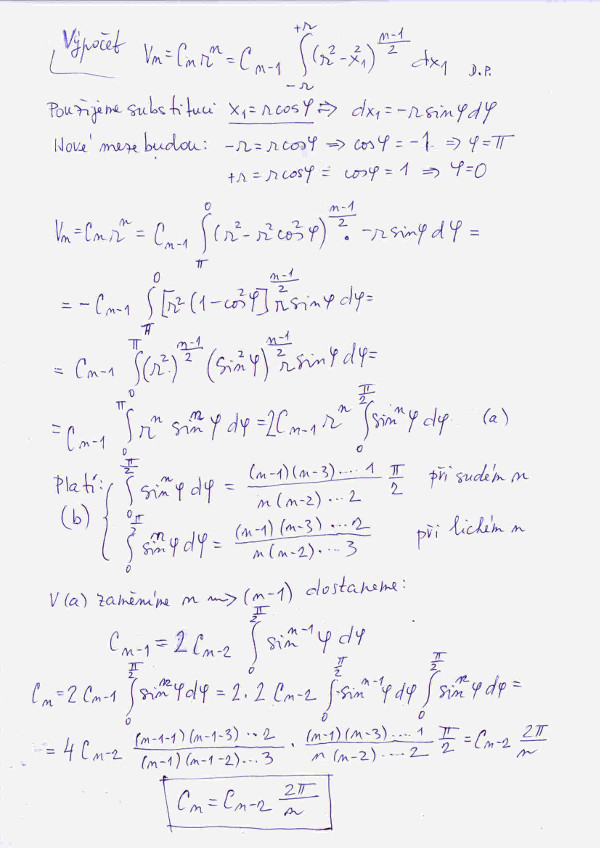 Výpočet Vₙ = Cₙ rⁿ = Cₙ₋₁ ∫₋ᵣ⁺ʳ (r² − x₁²)^((n−1)/2) dx₁ D.P.
Použijeme substituci x₁ = r cosφ ⇒ dx₁ = −r sinφ dφ
Nové meze budou: −r = r cosφ ⇒ cosφ = −1 ⇒ φ = π
+r = r cosφ = cosφ = 1 ⇒ φ = 0
Vₙ = Cₙ rⁿ = Cₙ₋₁ ∫_π^0 (r² − r² cos²φ)^((n−1)/2) · −r sinφ dφ =
= −Cₙ₋₁ ∫_π^0 [r² (1 − cos²φ)]^((n−1)/2) r sinφ dφ =
= Cₙ₋₁ ∫_0^π (r²)^((n−1)/2) (sin²φ)^((n−1)/2) r sinφ dφ =
= Cₙ₋₁ ∫_0^π rⁿ sinⁿφ dφ = 2Cₙ₋₁ rⁿ ∫_0^(π/2) sinⁿφ dφ (a)
Platí: ∫_0^(π/2) sinⁿφ dφ = (n−1)(n−3)....1 / n(n−2)...2 π/2 při sudém n
(b) ∫_0^(π/2) sinⁿφ dφ = (n−1)(n−3)....2 / n(n−2)...3 při lichém n
V (a) zaměníme n ⇒ (n−1) dostaneme:
Cₙ₋₁ = 2Cₙ₋₂ ∫_0^(π/2) sinⁿ⁻¹φ dφ
Cₙ = 2Cₙ₋₁ ∫_0^(π/2) sinⁿφ dφ = 2.2Cₙ₋₂ ∫_0^(π/2) sinⁿ⁻¹φ dφ ∫_0^(π/2) sinⁿφ dφ =
= 4Cₙ₋₂ (n−1−1)(n−1−3)..2 / (n−1)(n−1−2)...3 · (n−1)(n−3)....1 / n(n−2)....2 π/2 = Cₙ₋₂ 2π/n
Cₙ = Cₙ₋₂ 2π/n